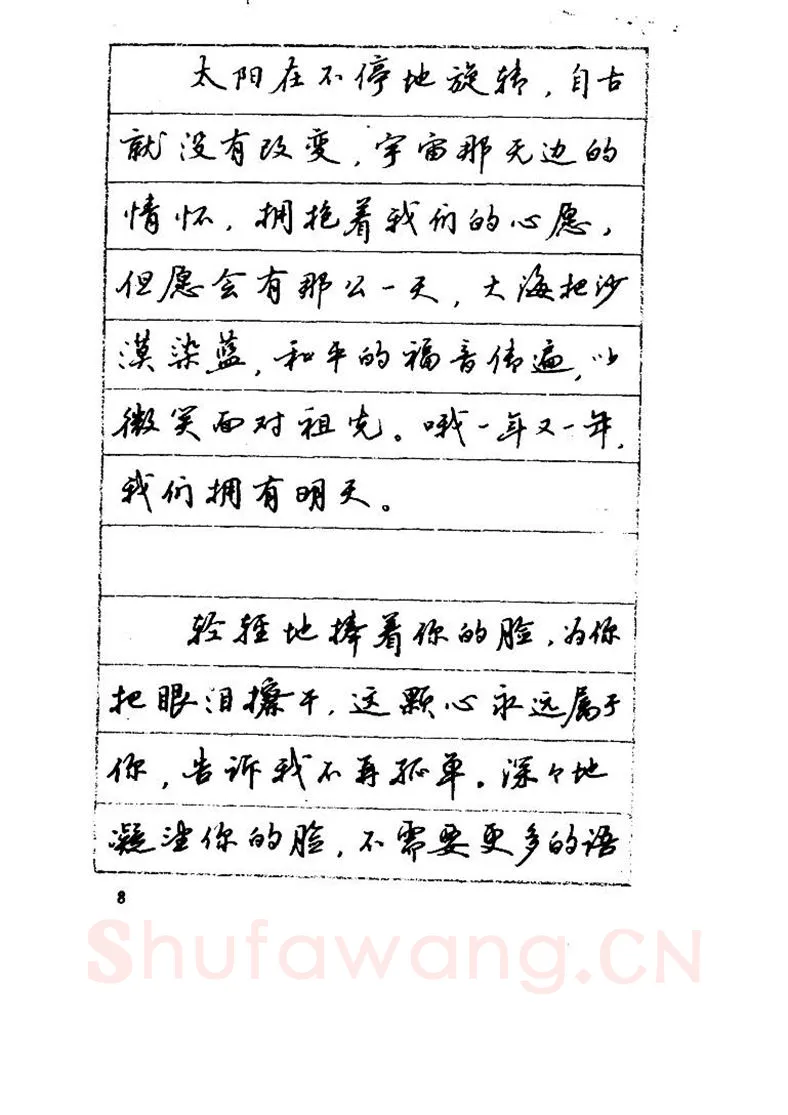 太阳在不停地旋转，自古
就没有改变，宇宙那无边的
情怀，拥抱着我们的心愿，
但愿会有那么一天，大海把沙
漠染蓝，和平的福音传遍，以
微笑面对祖先。哦一年又一年，
我们拥有明天。
轻轻地捧着你的脸，为你
把眼泪擦干，这颗心永远属于
你，告诉我不再孤单。深々地
凝望你的脸，不需要更多的语
8
Shufawang.CN